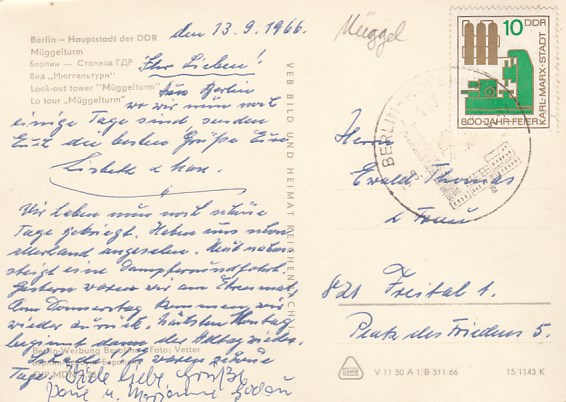 Berlin – Hauptstadt der DDR
Müggelturm
Берлин — Столица ГДР
Вид „Мюггельтурм"
Look-out tower "Müggelturm"
La tour „Müggelturm"
den 13.9.1966.
Ihr Lieben!
Aus Berlin
wo wir nun mit
einige Tage sind senden
Euch die besten Grüße Eure
Lisbeth u. Max.
Wir haben nun noch schöne
Tage gekriegt. Haben uns schon
allerhand angesehen.
steigt eine Dampferrundfahrt.
Gestern waren wir am Ehrenmal,
Am Donnerstag kommen wir
wieder zurück. Nächsten Montag
beginnt dann der Alltag wieder.
Schade es waren schöne
Tage.
Viele liebe Grüße
u. Marianne
Berlin-Werbung Foto: Vetter
VEB BILD UND HEIMAT REICHENBACH
Müggel
10 DDR
KARL-MARX-STADT
800-JAHR-FEIER
BERLIN
Herrn
Ewald Thomas
u. Frau
821 Freital 1.
Platz des Friedens 5.
V 11 50 A 1/B 511/66
15/1145 K